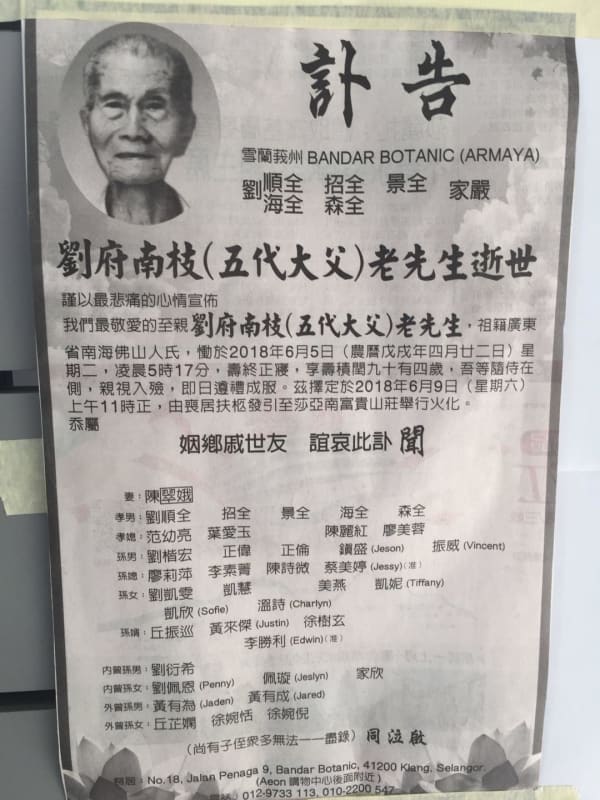 訃告
雪蘭莪州 BANDAR BOTANIC (ARMAYA)
劉順全 招全 景全 家嚴
海全 森全
劉府南枝(五代大父)老先生逝世
謹以最悲痛的心情宣佈
我們最敬愛的至親劉府南枝(五代大父)老先生，祖籍廣東
省南海佛山人氏，慟於2018年6月5日（農曆戊戌年四月廿二日）星
期二，凌晨5時17分，壽終正寢，享壽積閏九十有四歲，吾等隨侍在
側，親視入殮，即日遵禮成服。茲擇定於2018年6月9日（星期六）
上午11時正，由喪居扶柩發引至莎亞南富貴山莊舉行火化。
忝屬
姻鄉戚世友 誼哀此訃 聞
妻：陳翠娥
孝男：劉順全 招全 景全 海全 森全
孝媳：范幼亮 葉愛玉 陳麗紅 廖美蓉
孫男：劉楷宏 正偉 正倫 鎮盛(Jeson) 振威(Vincent)
孫媳：廖莉萍 李素菁 陳詩微 蔡美婷(Jessy)(准)
孫女：劉凱雯 凱慧 美燕 凱妮(Tiffany)
凱欣(Sofie) 溫詩(Charlyn)
孫婿：丘振巡 黃來傑(Justin) 徐樹玄
李勝利(Edwin)(准)
內曾孫男：劉衍希
內曾孫女：劉佩恩(Penny) 佩璇(Jeslyn) 家欣
外曾孫男：黃有為(Jaden) 黃有成(Jared)
外曾孫女：丘芷嫻 徐婉恬 徐婉倪
（尚有子侄衆多無法一一盡錄）同泣啟
喪居：No.18, Jalan Penaga 9, Bandar Botanic, 41200 Klang, Selangor.
(Aeon 購物中心後面附近)
電話：012-9733 113, 010-2200 547